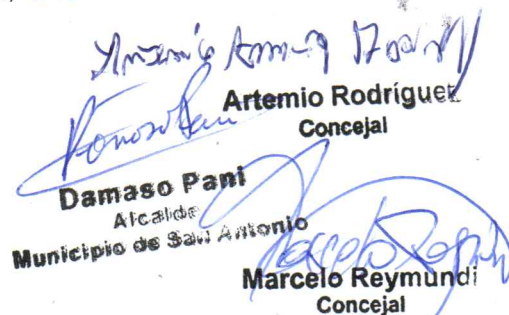 Artemio Rodríguez
Concejal
Damaso Pani
Alcalde
Municipio de San Antonio
Marcelo Reymundi
Concejal